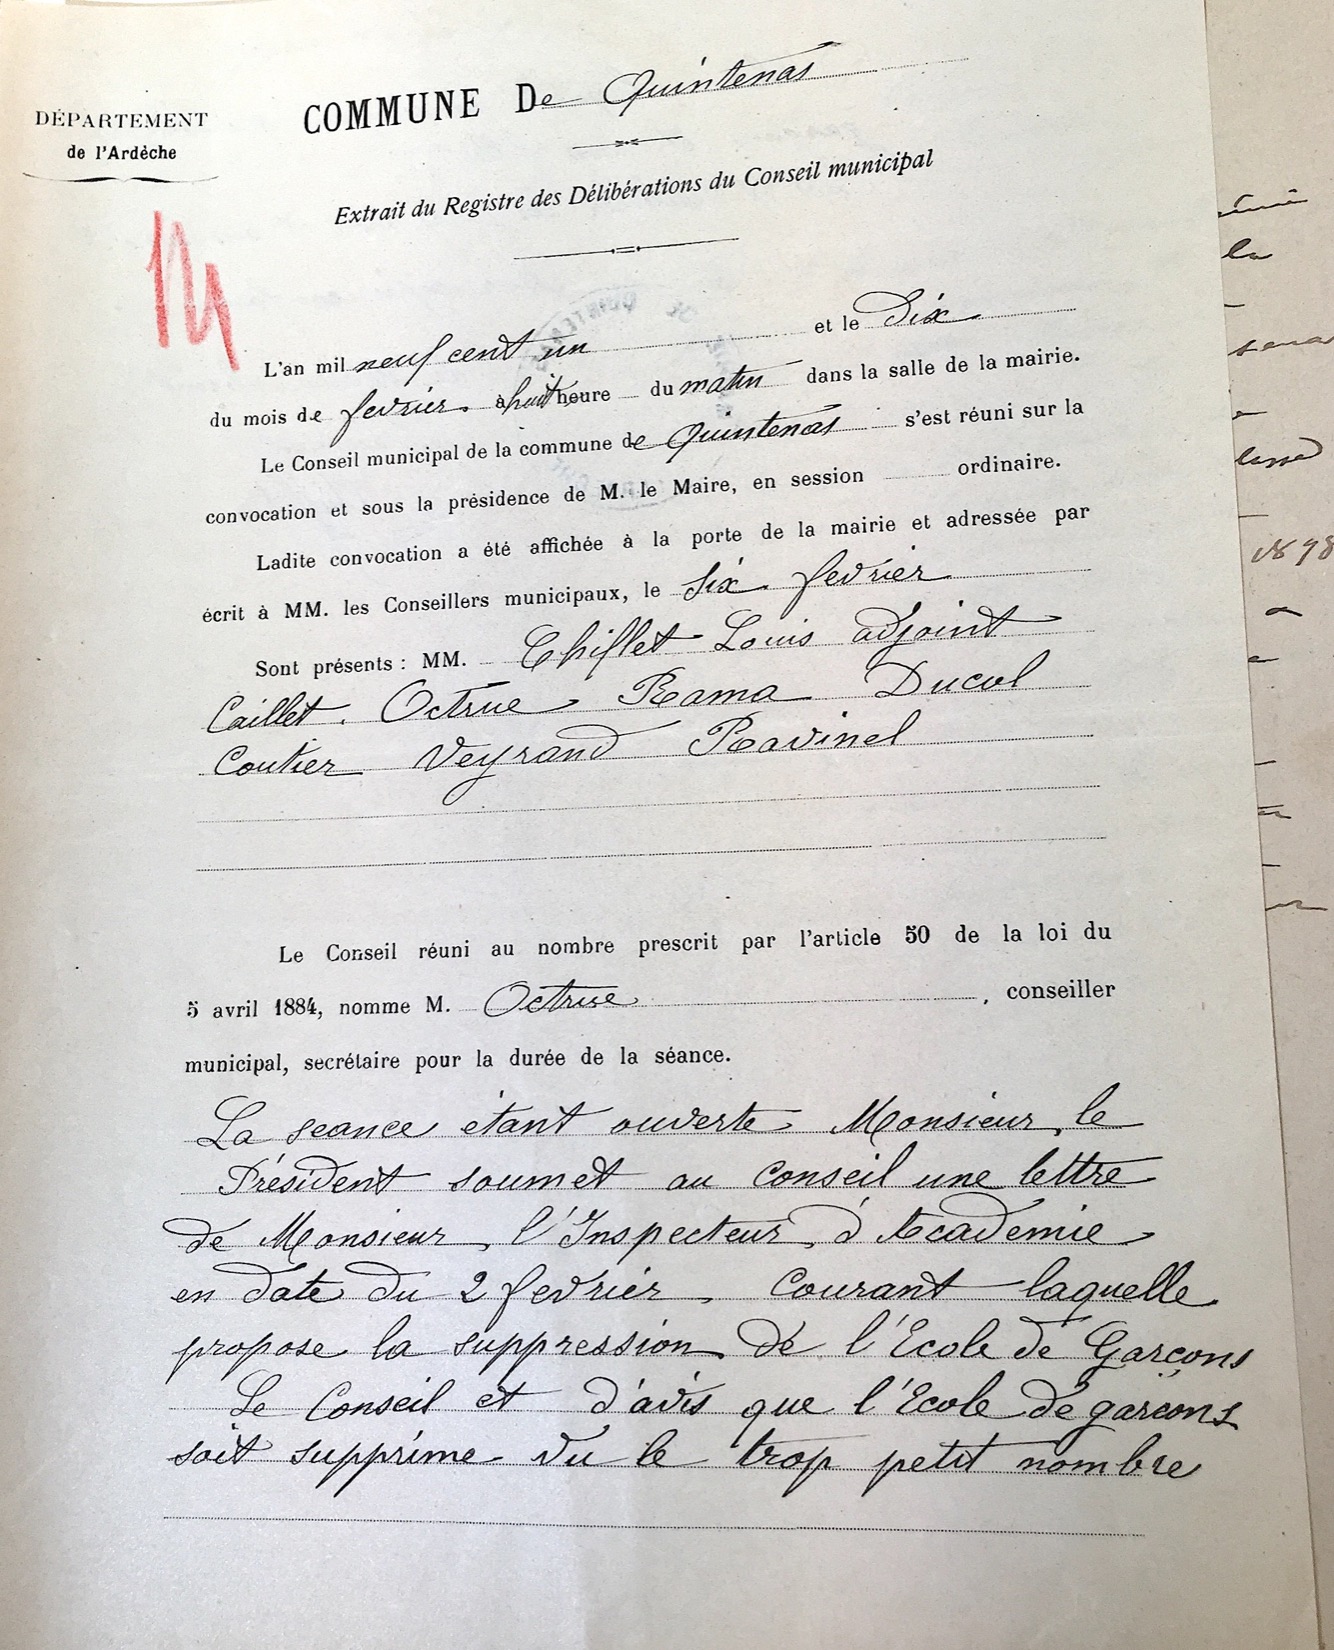 DÉPARTEMENT
de l'Ardèche
COMMUNE De Quintenas
Extrait du Registre des Délibérations du Conseil municipal
L'an mil neuf cent un et le Dix
du mois de fevrier à huit heure du matin dans la salle de la mairie.
Le Conseil municipal de la commune de Quintenas s'est réuni sur la
convocation et sous la présidence de M. le Maire, en session ordinaire.
Ladite convocation a été affichée à la porte de la mairie et adressée par
écrit à MM. les Conseillers municipaux, le six fevrier
Sont présents : MM. Chifflet Louis adjoint
Caillet. Octrue Rama Ducol
Coutier Veyrand Ravinel
Le Conseil réuni au nombre prescrit par l'article 50 de la loi du
5 avril 1884, nomme M. Octrue, conseiller
municipal, secrétaire pour la durée de la séance.
La seance étant ouverte Monsieur le
Président soumet au Conseil une lettre
de Monsieur l'Inspecteur d'Academie
en date du 2 fevrier Courant laquelle
propose la suppression de l'Ecole de Garçons
Le Conseil et d'avis que l'Ecole de garçons
soit supprime vu le trop petit nombre
la
1898